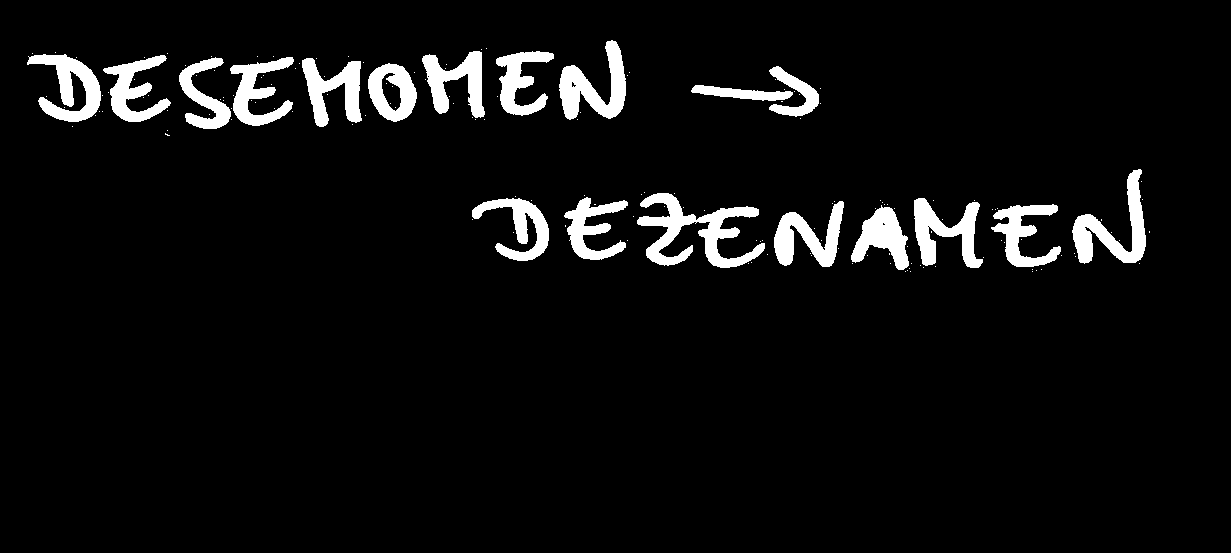 DESEMOMEN →
DEZENAMEN